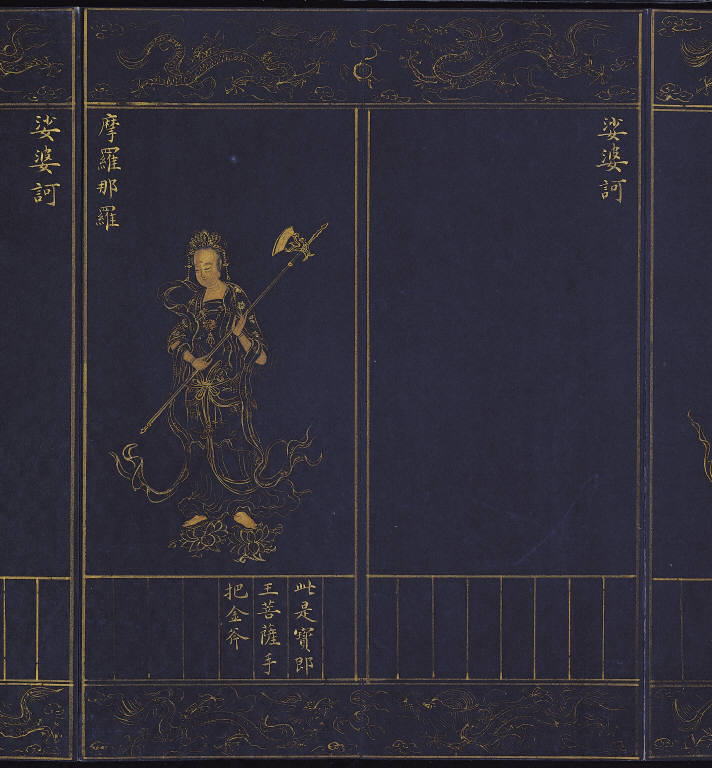 娑婆訶
摩羅那羅
此是寶即
王菩薩手
把金斧
娑婆訶